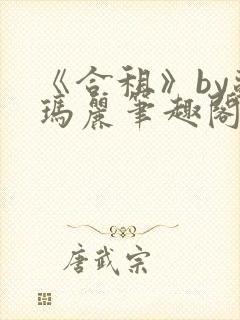 《合租》by
瑪麗筆趣閣
唐武宗